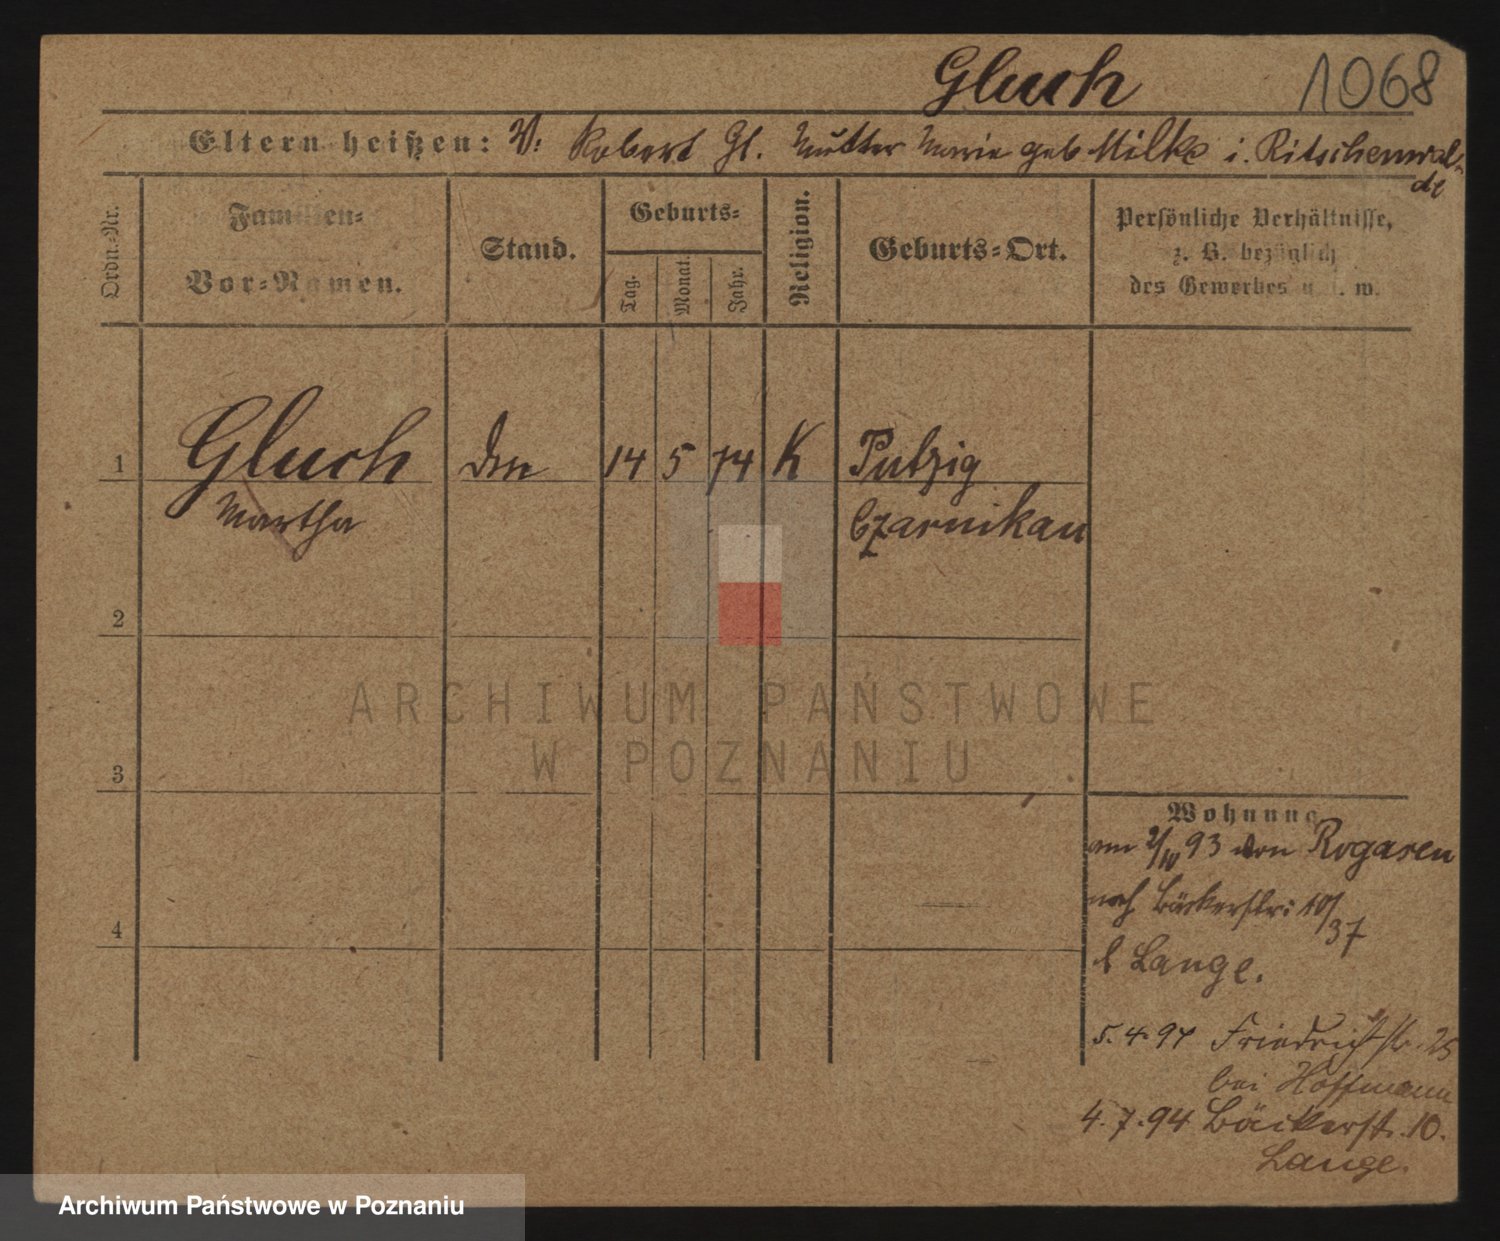 Gluch 1068
Eltern heißen: V. Robert Gl. Mutter Marie geb Milke i. Ritschenwal-
de
Ordn.-Nr.
Familien-
Vor-Namen.
Stand.
Geburts-
Tag.
Monat.
Jahr.
Religion.
Geburts-Ort.
Persönliche Verhältnisse,
z. B. bezüglich
des Gewerbes u. s. w.
1 Gluch 14 5 74 K Putzig
Martha Czarnikau
2
3
4
ARCHIWUM PAŃSTWOWE
W POZNANIU
Wohnung
am 2/IV 93 von Rogasen
nach Bäckerstr: 10/
37
b Lange.
5.4.94 Friedrichstr. 25
bei Hoffmann
4.7.94 Bäckerstr. 10.
Lange.
Archiwum Państwowe w Poznaniu